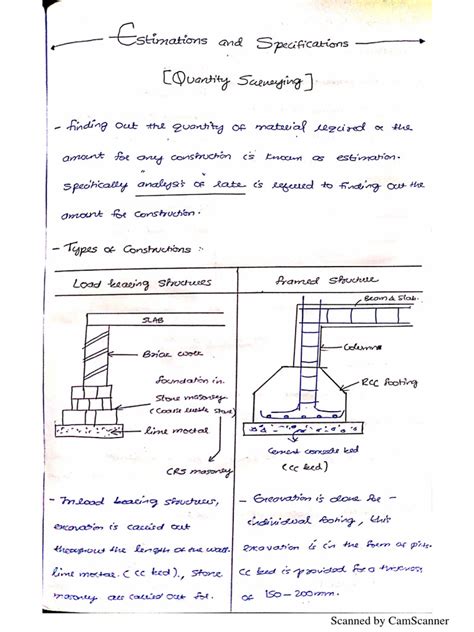 Estimations and Specifications
[Quantity Surveying]
- finding out the quantity of material required & the
amount for any construction is known as estimation.
Specifically "analysis of rate" is refered to finding out the
amount for construction.
- Types of Constructions :-
Load bearing structures
SLAB
Brick work
foundation in
Stone masonry
(Coarse rubble stone)
lime mortar
CRS masonry
- In load bearing structures,
excavation is carried out
throughout the length of the wall.
lime mortar. (CC bed), stone
masonry are carried out for.
Framed Structure
Beam & slab.
Column
RCC footing
Cement concrete bed
(CC bed)
- Excavation is done for -
individual footing, this
excavation is in the form of pits.
CC bed is provided for a thickness
of 150-200mm.
Scanned by CamScanner